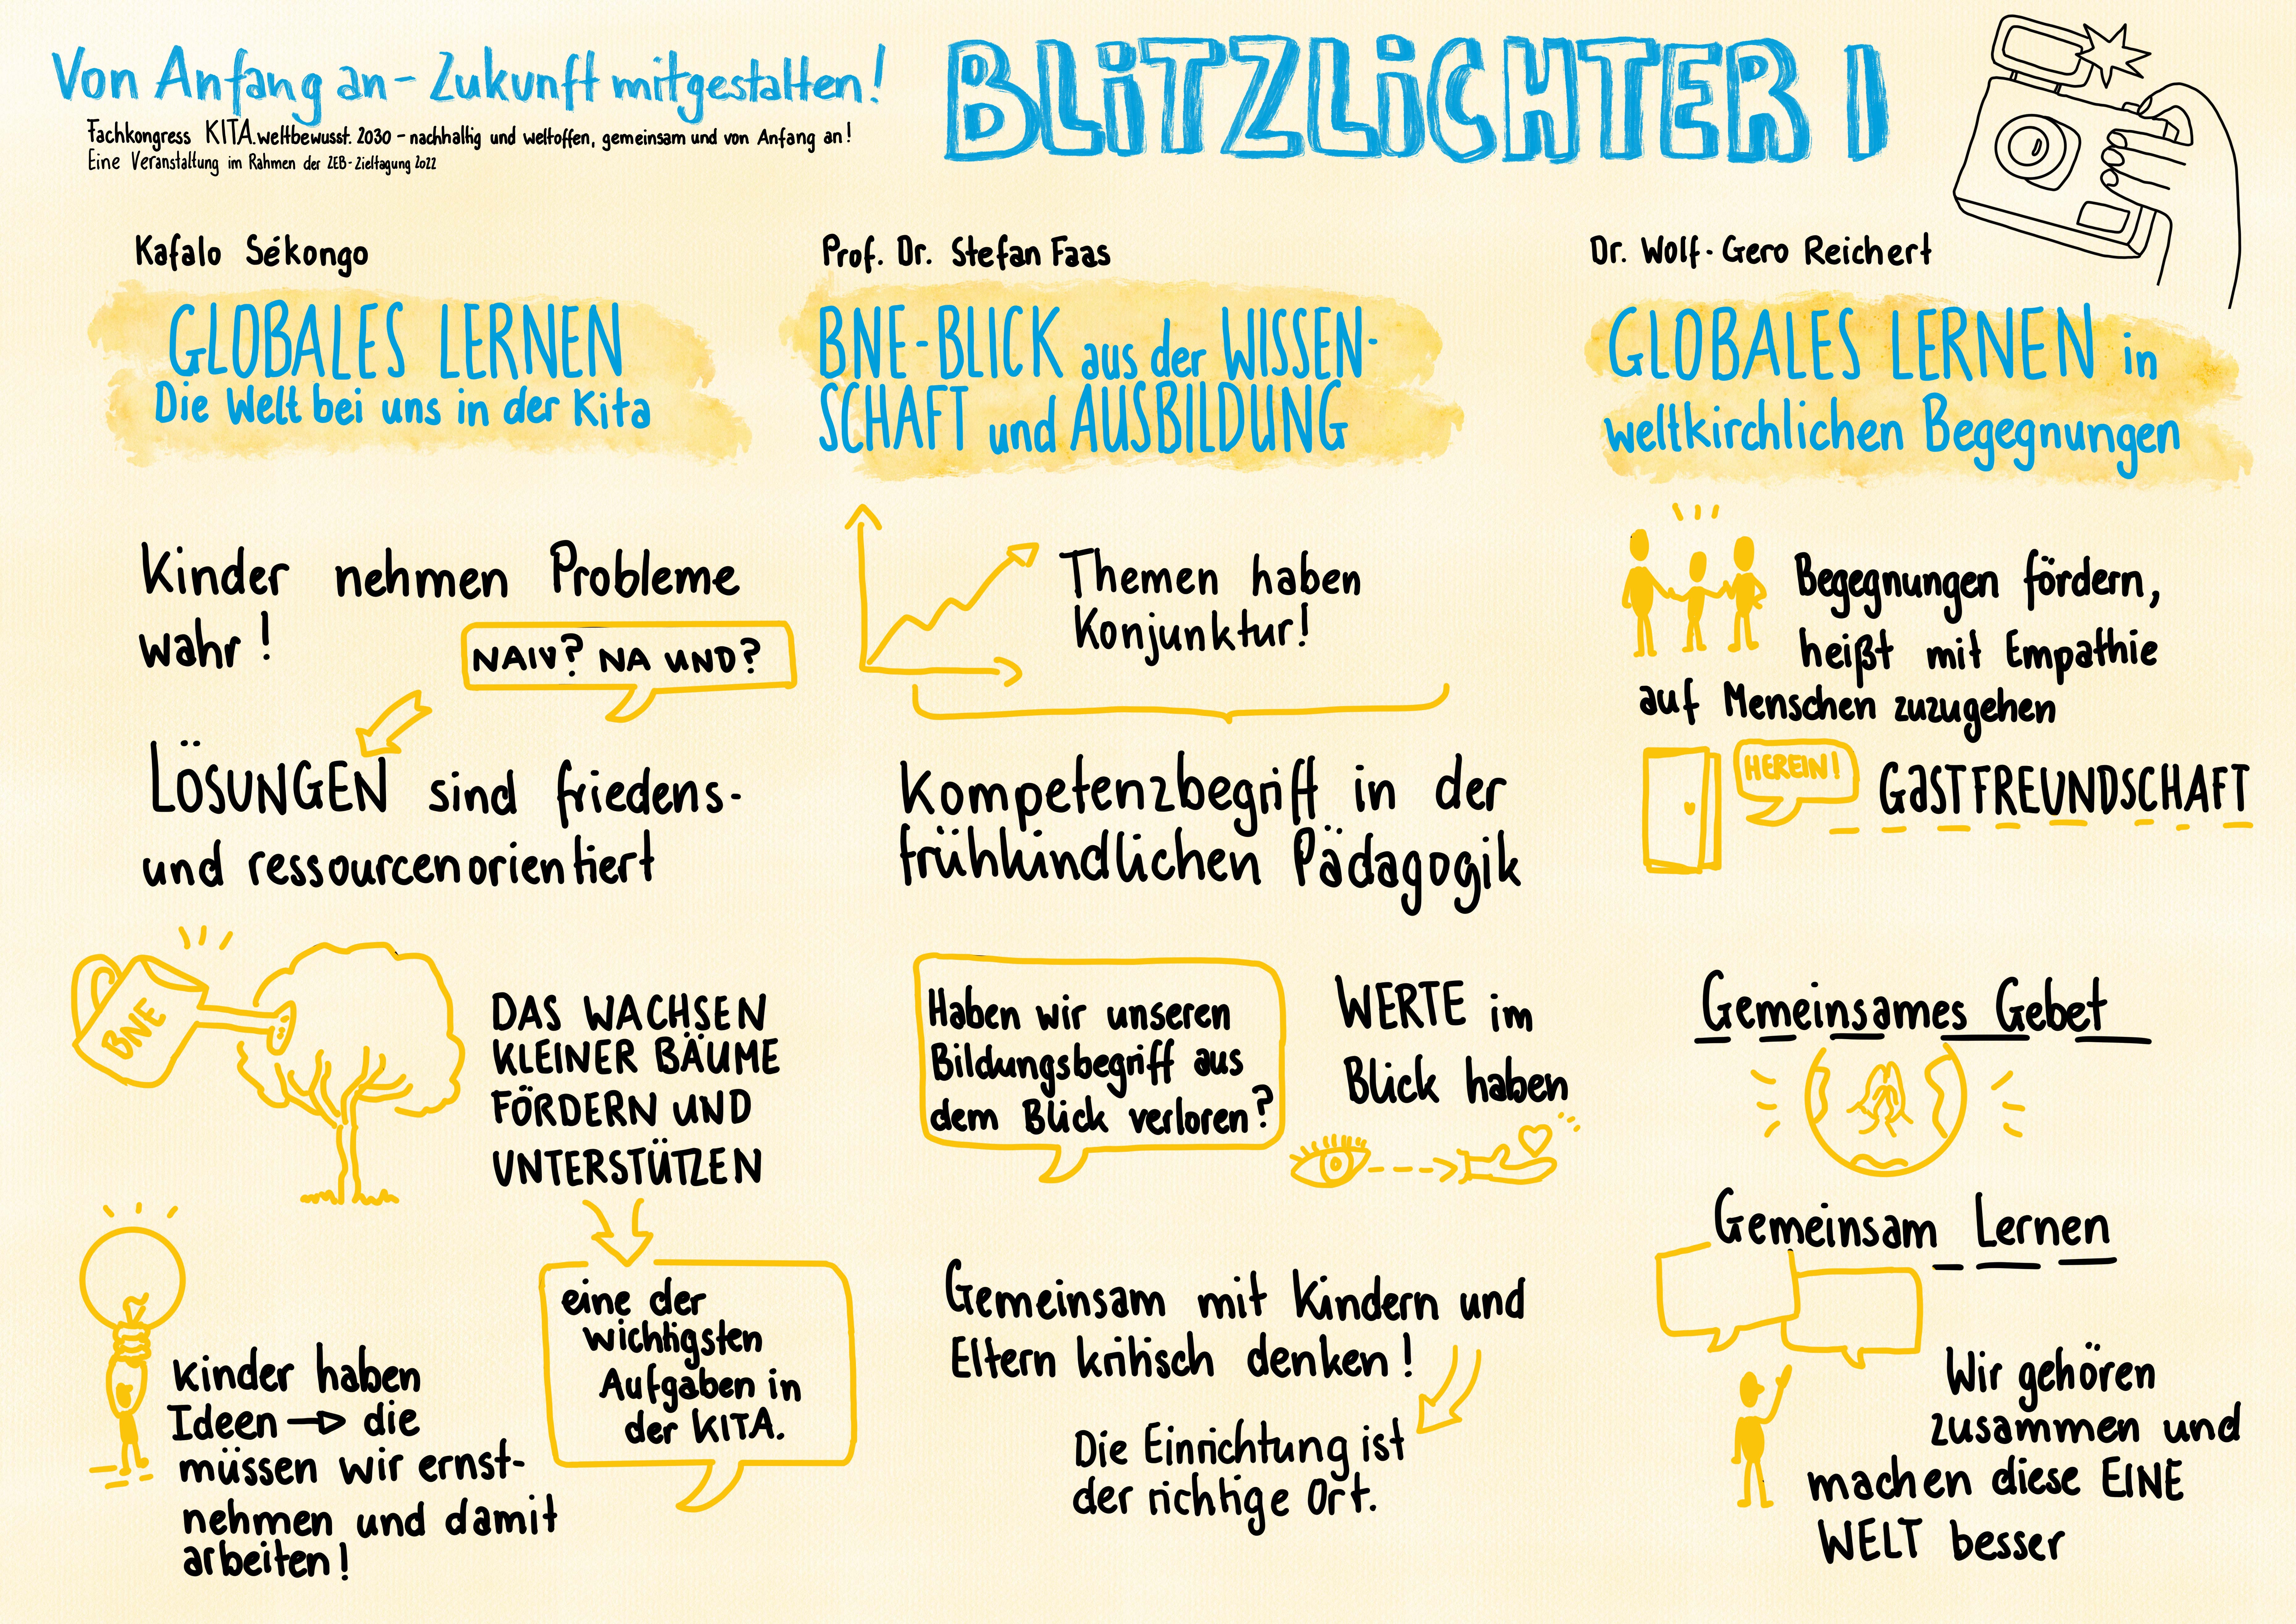 Von Anfang an - Zukunft mitgestalten!
Fachkongress KITA.weltbewusst. 2030 - nachhaltig und weltoffen, gemeinsam und von Anfang an!
Eine Veranstaltung im Rahmen der ZEB-Zieltagung 2022
BLITZLICHTER I
Kafalo Sékongo
GLOBALES LERNEN
Die Welt bei uns in der Kita
Kinder nehmen Probleme
wahr!
NAIV? NA UND?
LÖSUNGEN sind friedens-
und ressourcenorientiert
BNE
DAS WACHSEN
KLEINER BÄUME
FÖRDERN UND
UNTERSTÜTZEN
eine der
wichtigsten
Aufgaben in
der KITA.
Kinder haben
Ideen → die
müssen wir ernst-
nehmen und damit
arbeiten!
Prof. Dr. Stefan Faas
BNE-BLICK aus der WISSEN-
SCHAFT und AUSBILDUNG
Themen haben
Konjunktur!
Kompetenzbegriff in der
frühkindlichen Pädagogik
Haben wir unseren
Bildungsbegriff aus
dem Blick verloren?
WERTE im
Blick haben
Gemeinsam mit Kindern und
Eltern kritisch denken!
Die Einrichtung ist
der richtige Ort.
Dr. Wolf-Gero Reichert
GLOBALES LERNEN in
weltkirchlichen Begegnungen
Begegnungen fördern,
heißt mit Empathie
auf Menschen zuzugehen
HEREIN!
GASTFREUNDSCHAFT
Gemeinsames Gebet
Gemeinsam Lernen
Wir gehören
zusammen und
machen diese EINE
WELT besser